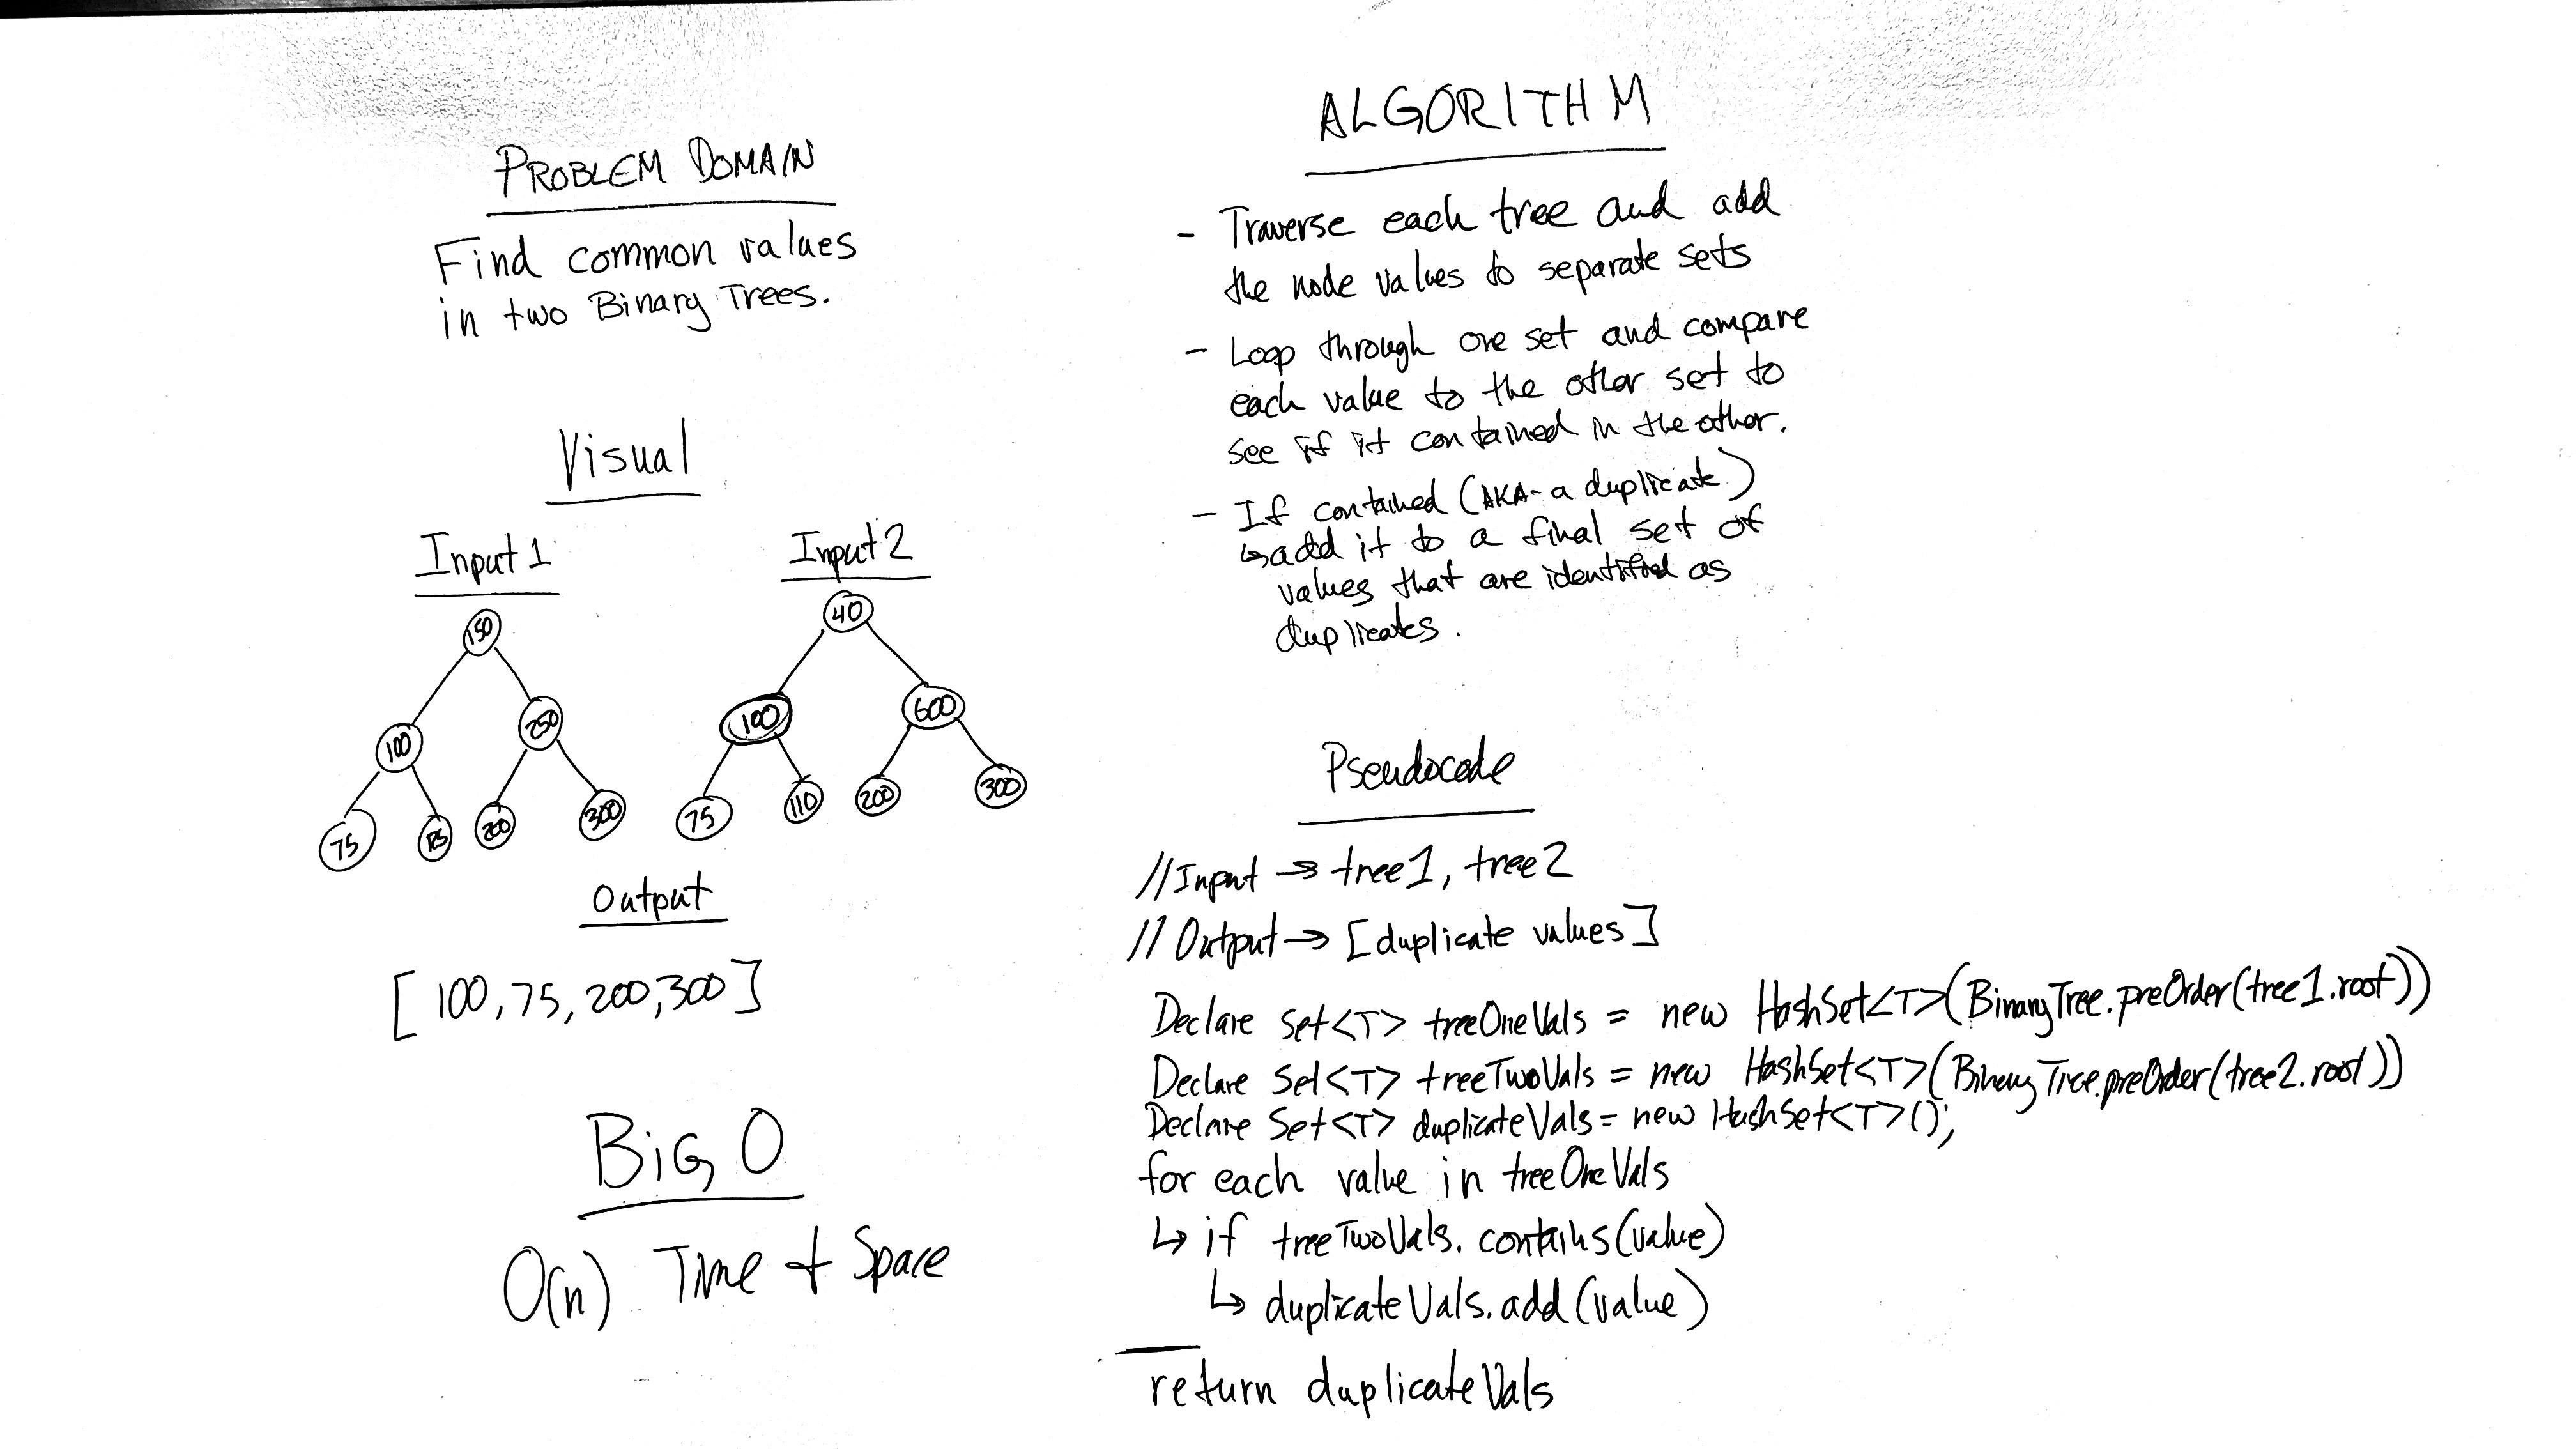 PROBLEM DOMAIN
Find common values
in two Binary Trees.
Visual
Input 1
150
100
250
75
125
200
300
Input 2
40
100
600
75
110
200
300
Output
[100, 75, 200, 300]
BIG O
O(n) Time + Space
ALGORITHM
- Traverse each tree and add
the node values to separate sets
- Loop through one set and compare
each value to the other set to
see if it contained in the other.
- If contained (AKA - a duplicate)
↳ add it to a final set of
values that are identified as
duplicates.
Pseudocode
//Input → tree1, tree2
//Output → [duplicate values]
Declare Set<T> treeOneVals = new HashSet<T>(BinaryTree.preOrder(tree1.root))
Declare Set<T> treeTwoVals = new HashSet<T>(BinaryTree.preOrder(tree2.root))
Declare Set<T> duplicateVals = new HashSet<T>();
for each value in treeOneVals
↳ if treeTwoVals.contains(value)
↳ duplicateVals.add(value)
return duplicateVals